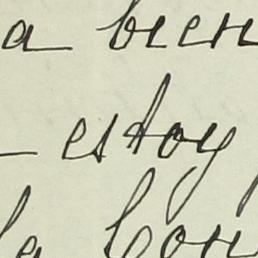 a bien
estoy
la Con